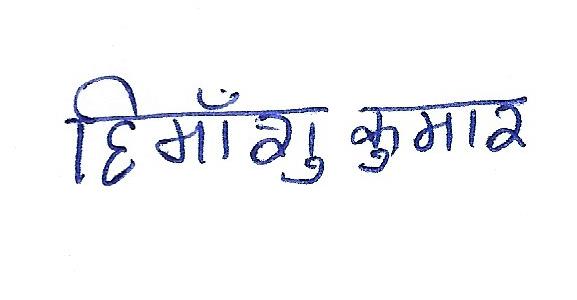 हिमाँशु कुमार